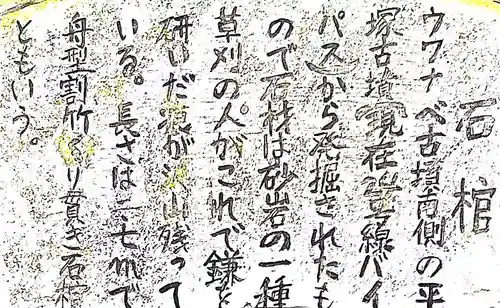 石棺
ウワナベ古墳南側の平
塚古墳(現在24号線バイ
パス)から発掘されたも
ので石材は砂岩の一種
草刈の人がこれで鎌を
研いだ痕が沢山残って
いる。長さは二.七れで
舟型割竹くり貫き石棺
ともいう。